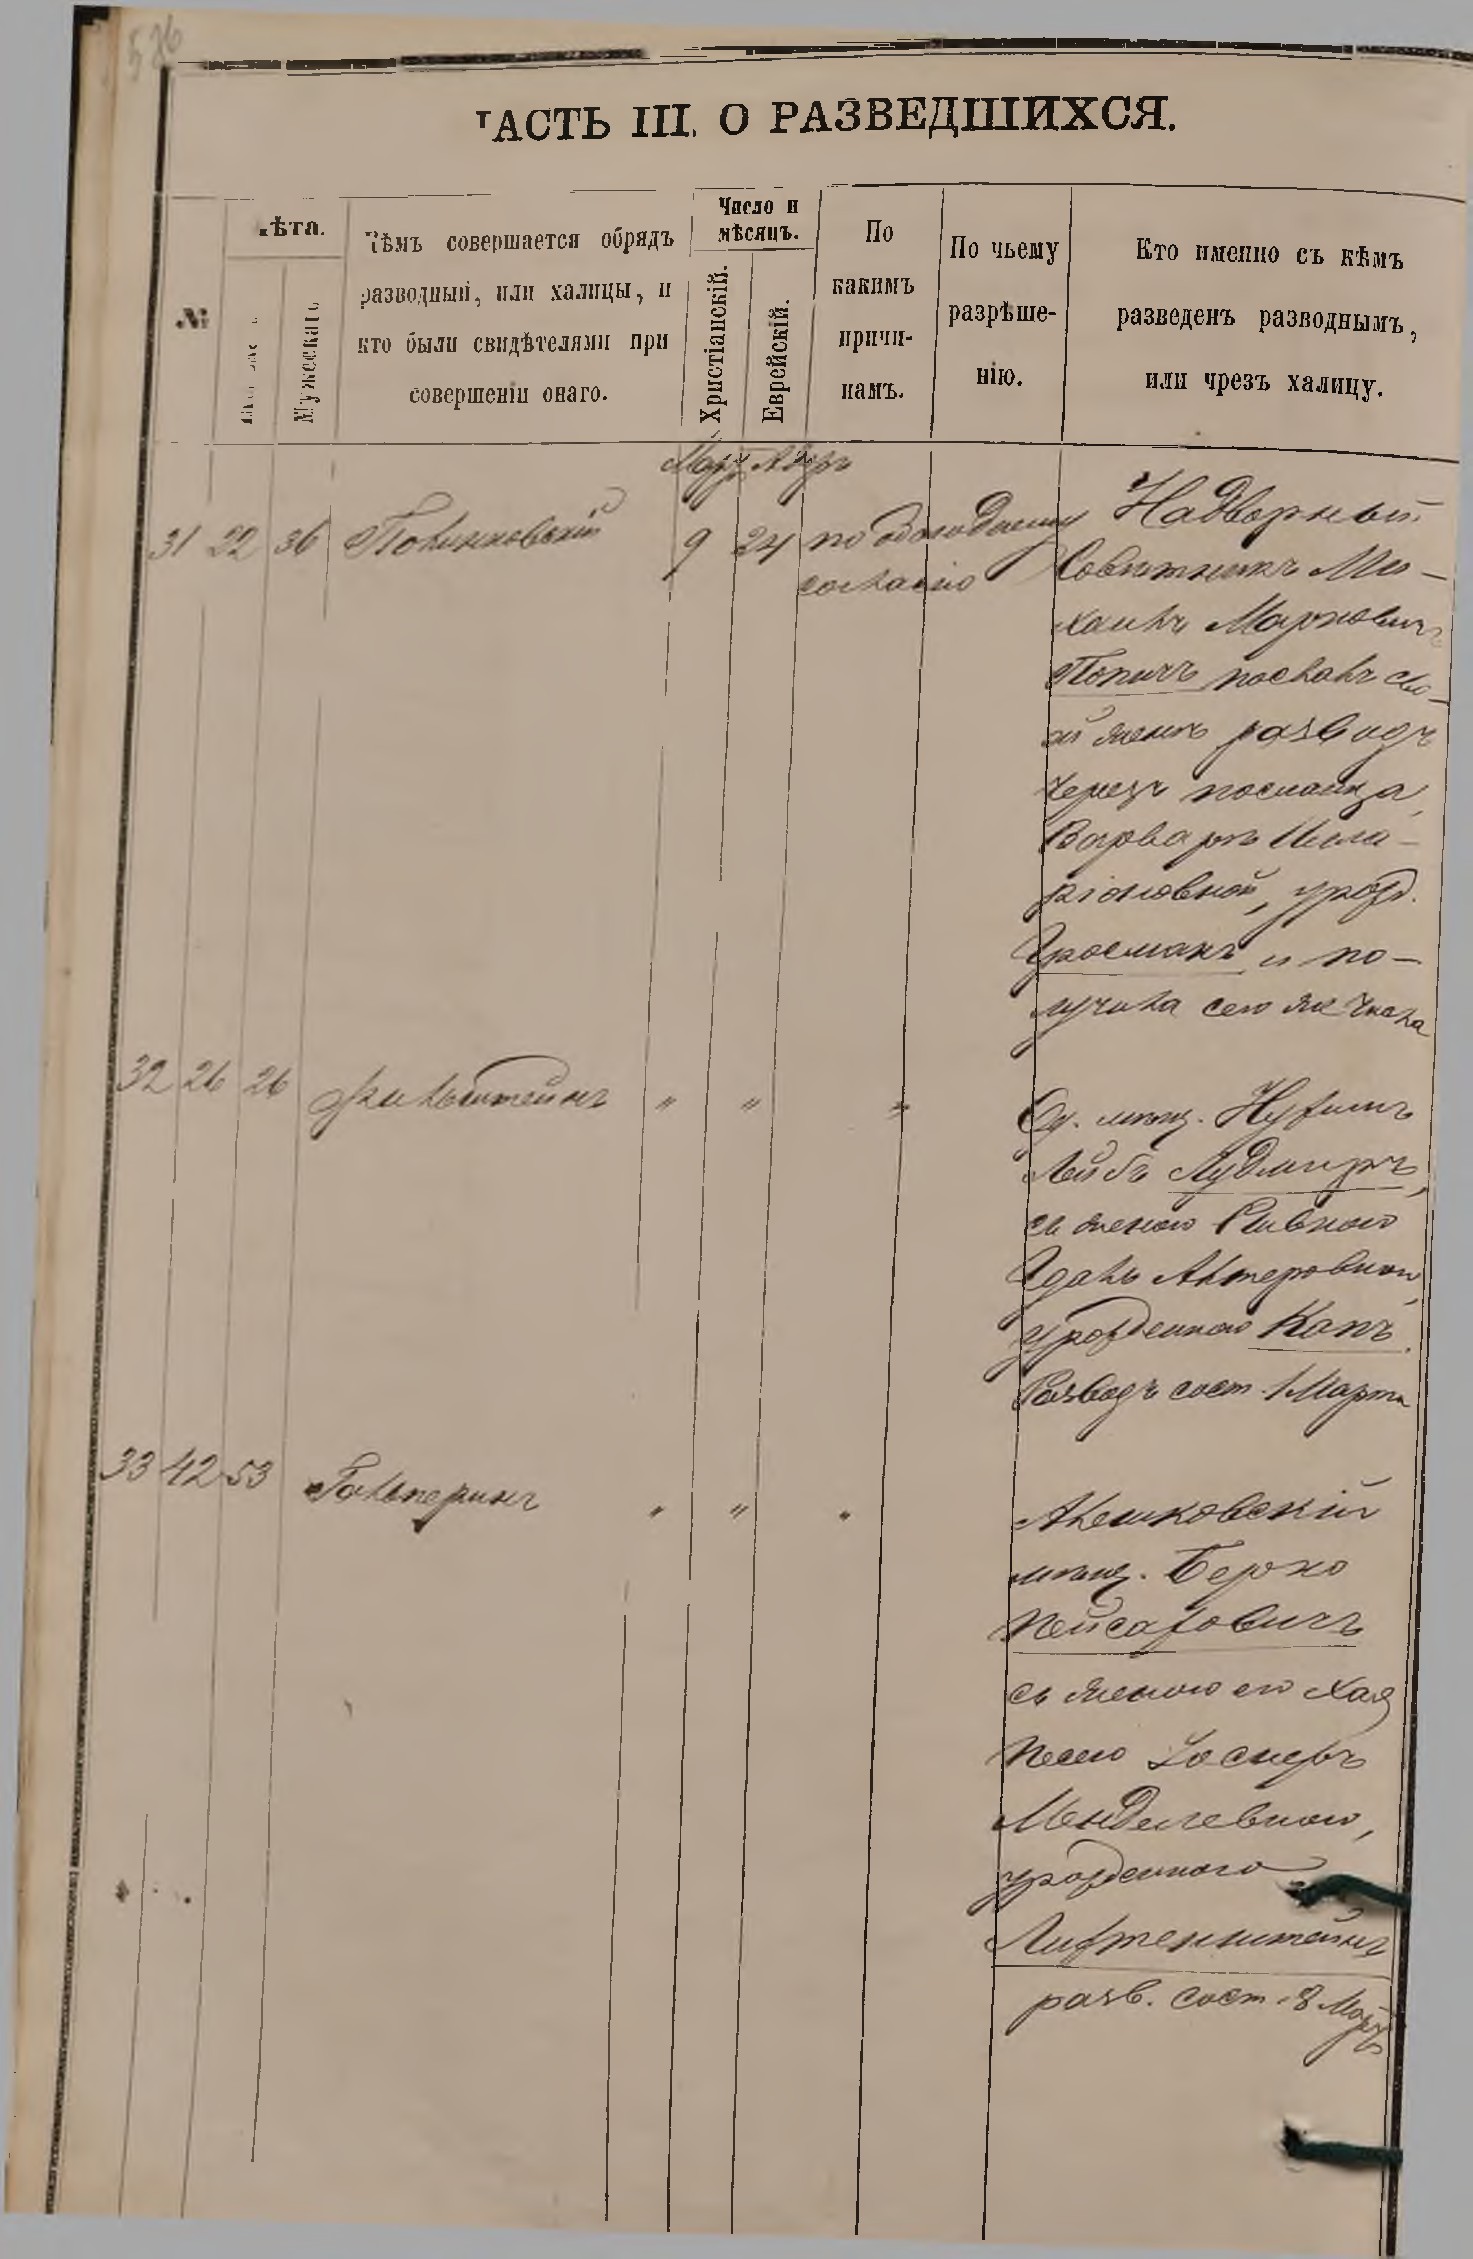 526
ЧАСТЬ III. О РАЗВЕДШИХСЯ.
№
Лѣта.
Мужескаго
Кѣмъ совершается обрядъ
разводный, или халицы, и
кто были свидѣтелями при
совершеніи онаго.
Число и
мѣсяцъ.
Христіанскій.
Еврейскій.
По
какимъ
причи-
намъ.
По чьему
разрѣше-
нію.
Кто именно съ кѣмъ
разведенъ разводнымъ,
или чрезъ халицу.
Мар. Адаръ
31 22 36 Полинковскій 9 24 по обоюдному
согласію
Надворный
Совѣтникъ Ми-
хаилъ Марковичъ
послалъ сво-
ей женѣ разводъ
черезъ посланца,
Варварѣ Илла-
ріоновной, урожд.
Гросманъ и по-
лучила сего же числа
32 26 26 Фильштейнъ " " "
Од. мѣщ. Нухимъ
Лейбъ Лудмиръ,
съ женою Ривкою
Годаль Алтеровною,
урожденною Капъ.
Разводъ сост. 1 Марта
33 42 53 Гальперинъ " " "
Алешковскій
мѣщ. Берко
Пейсаховичъ
съ женою его Хая
Песею
Менделевною,
урожденною
Лихтенштейнъ
разв. сост. 8 Марта